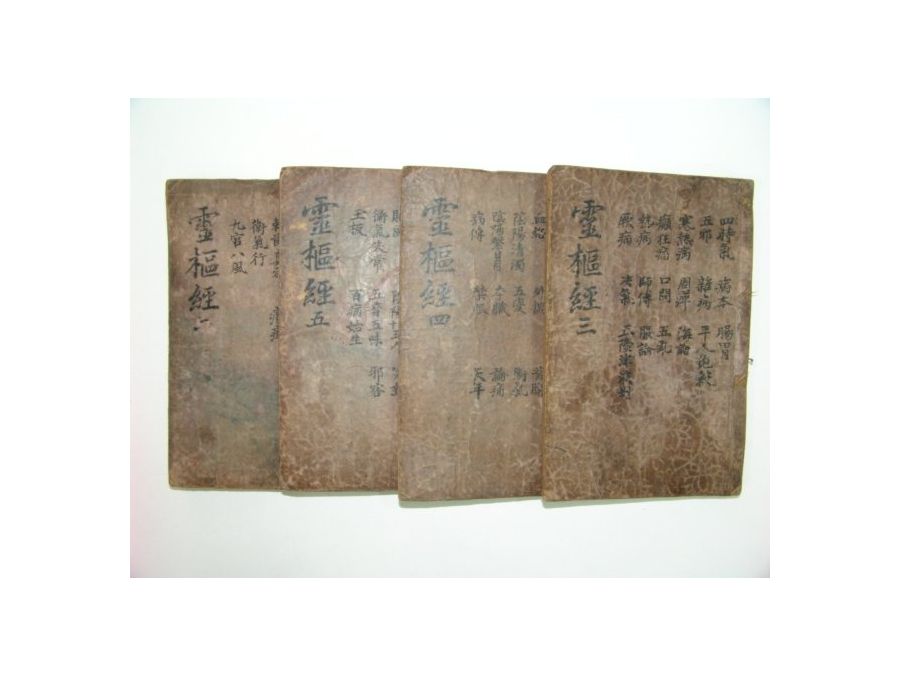 四時氣 病本 腸胃
五邪 雜病 平人絶穀
寒熱病 周痺 海論
癲狂病 口問 五亂
熱病 師傳 脹論
厥病 決氣 五癃津液別
靈樞經 三
血絡
陰陽清濁 五變 衛氣
陰陽繫日月 本臟 論痛
病傳 禁服 天年
靈樞經 四
衛氣失常 五音五味 邪客
玉板 百病始生
靈樞經 五
衛氣行
九宮八風
靈樞經